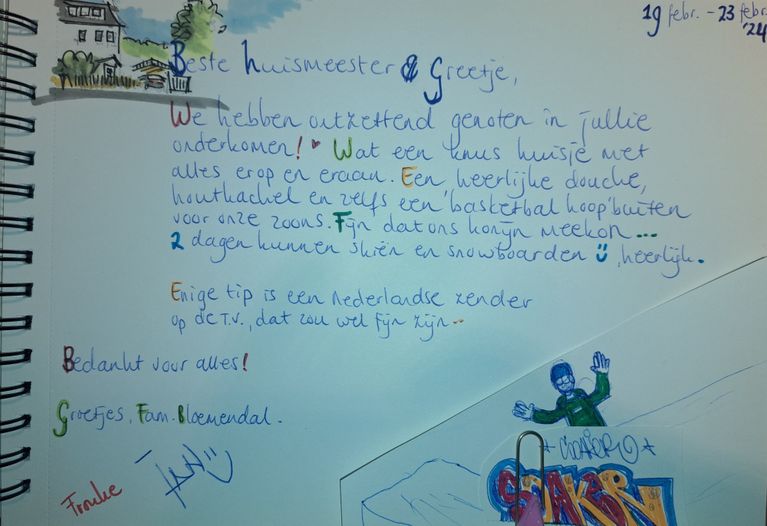 19 febr. - 23 febr.
'24
Beste huismeester & Greetje,
We hebben ontzettend genoten in jullie
onderkomen! Wat een knus huisje met
alles erop en eraan. Een heerlijke douche,
houtkachel en zelfs een 'basketbal hoop' buiten
voor onze zoons. Fijn dat ons konijn meekon...
2 dagen kunnen skiën en snowboarden, heerlijk.
Enige tip is een Nederlandse zender
op de T.V., dat zou wel fijn zijn..
Bedankt voor alles!
Groetjes, Fam. Bloemendal.
Frouke